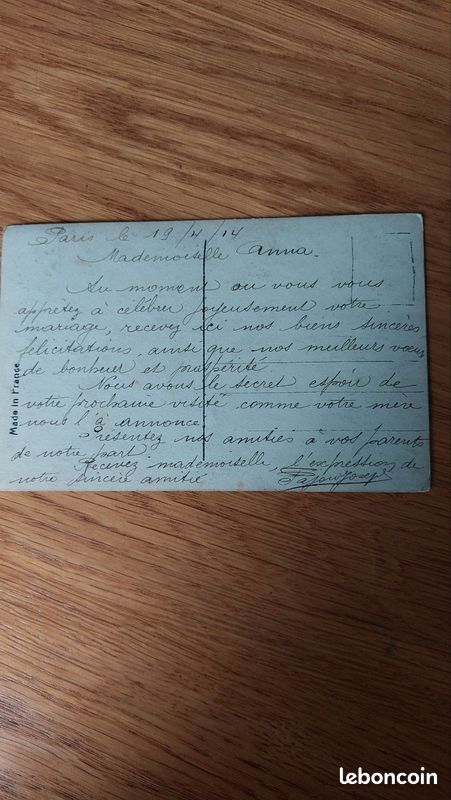 Paris le 19/4/14
Mademoiselle Anna.
Au moment ou vous vous
apprêtez à célébrer joyeusement votre
mariage, recevez ici nos biens sincères
félicitations, ainsi que nos meilleurs vœux
de bonheur et prospérité
Nous avons le secret espoir de
votre prochaine visité comme votre mère
nous l'à annonce
Présentez nos amitiés à vos parents
de notre part.
Recevez mademoiselle, l'expression de
notre sincère amitié
Made in France
leboncoin